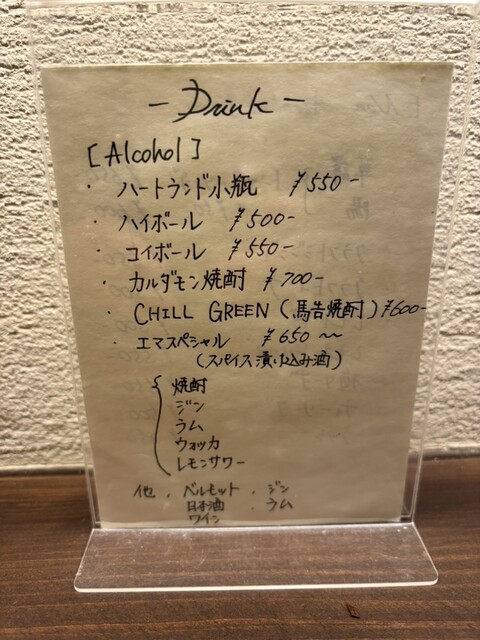 - Drink -
[Alcohol]
・ ハートランド小瓶 ¥550-
・ ハイボール ¥500-
・ コイボール ¥550-
・ カルダモン焼酎 ¥700-
・ CHILL GREEN (馬告焼酎) ¥600-
・ エマスペシャル ¥650〜
(スパイス漬け込み酒)
焼酎
ジン
ラム
ウォッカ
レモンサワー
他、ベルモット、ジン
日本酒、ラム
ワイン